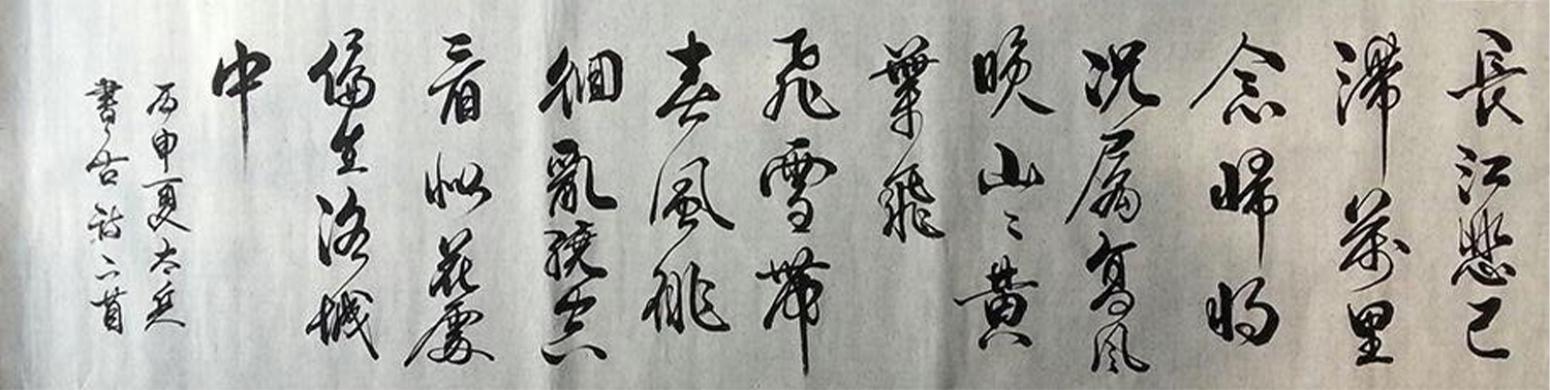 長江悲已
滯萬里
念歸將
況屬高風
晚山々黃
葉飛
飛雪帶
春風徘
徊亂繞空
君看似花處
偏在洛城
中
丙申夏太兵
書古詩二首